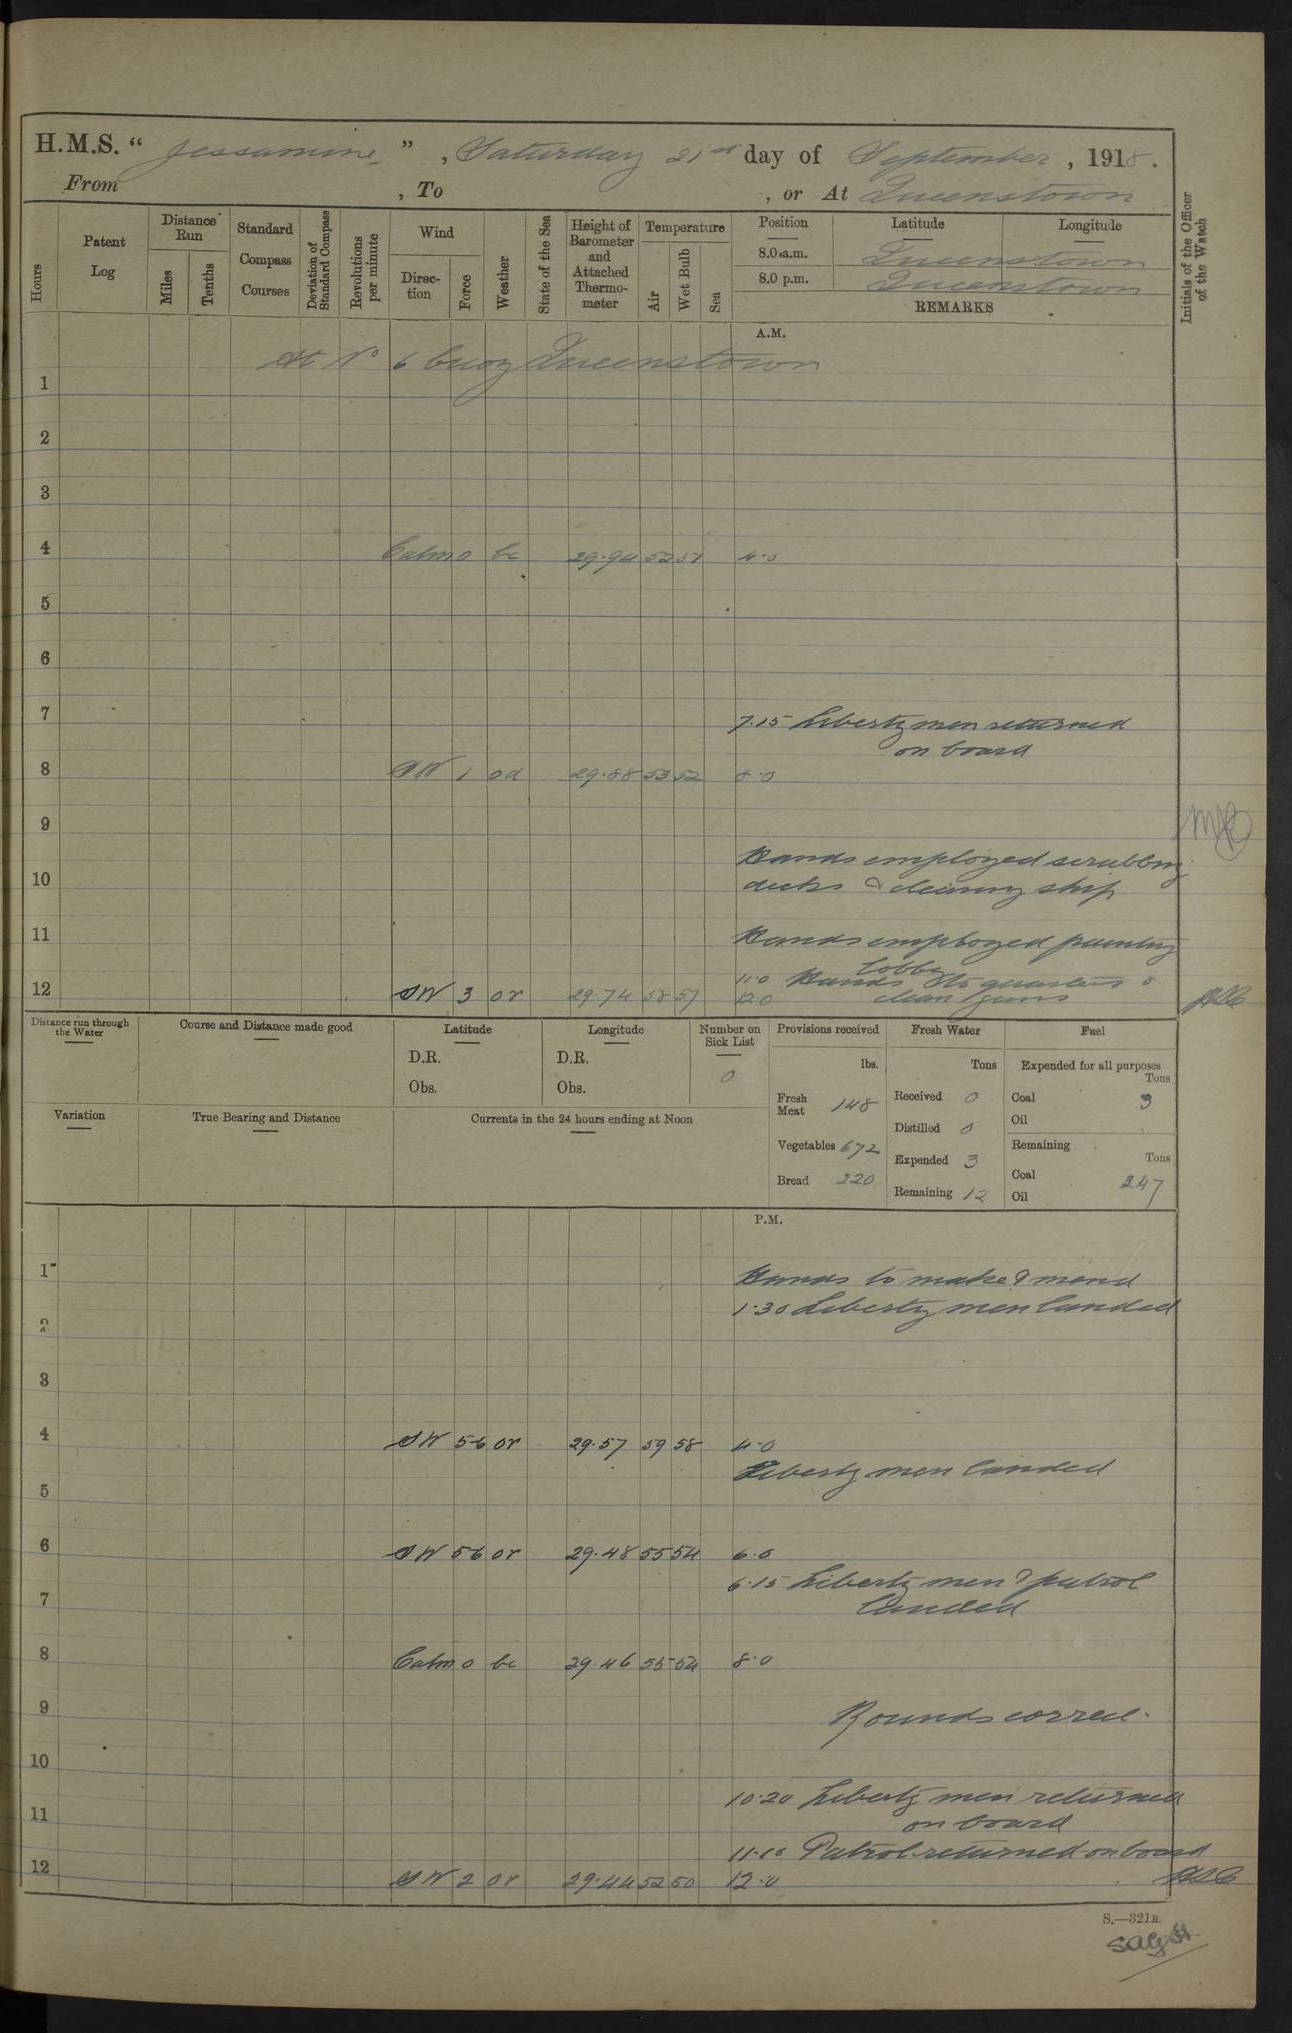 H.M.S. “ Jessamine ” , Saturday 21st day of September , 1918.
From , To , or At Queenstown
Hours
Patent Log
Distance Run
Miles
Tenths
Standard Compass Courses
Deviation of Standard Compass
Revolutions per minute
Wind
Direc-tion
Force
Weather
State of the Sea
Height of Barometer and Attached Thermo-meter
Temperature
Air
Wet Bulb
Sea
Position Latitude Longitude
8.0 a.m. Queenstown
8.0 p.m. Queenstown
REMARKS
Initials of the Officer of the Watch
A.M.
At No 6 buoy Queenstown
1
2
3
4 Calm 0 bc 29.94 52 51 4.0
5
6
7 7.15 Liberty men returned
on board
8 SW 1 od 29.88 53 52 8.0
9
Hands employed scrubbing
10 decks & cleaning ship
11 Hands employed painting
lobby
11.0 Hands to quarters &
12 SW 3 or 29.74 58 57 12.0 clean guns
Distance run through the Water
Course and Distance made good
Latitude
D.R.
Obs.
Longitude
D.R.
Obs.
Number on Sick List
0
Provisions received
lbs.
Fresh Meat 148
Vegetables 672
Bread 220
Fresh Water
Tons
Received 0
Distilled 0
Expended 3
Remaining 12
Fuel
Expended for all purposes
Tons
Coal 3
Oil
Remaining
Tons
Coal 247
Oil
Variation
True Bearing and Distance
Currents in the 24 hours ending at Noon
P.M.
1 Hands to make & mend
1.30 Liberty men landed
2
3
4 SW 5-6 or 29.57 59 58 4.0
Liberty men landed
5
6 SW 5-6 or 29.48 55 54 6.0
6.15 Liberty men & patrol
7 landed
8 Calm 0 bc 29.46 55 54 8.0
9 Rounds correct.
10
10.20 Liberty men returned
11 on board
11.10 Patrol returned on board
12 SW 2 or 29.44 52 50 12.0
S.—321a.